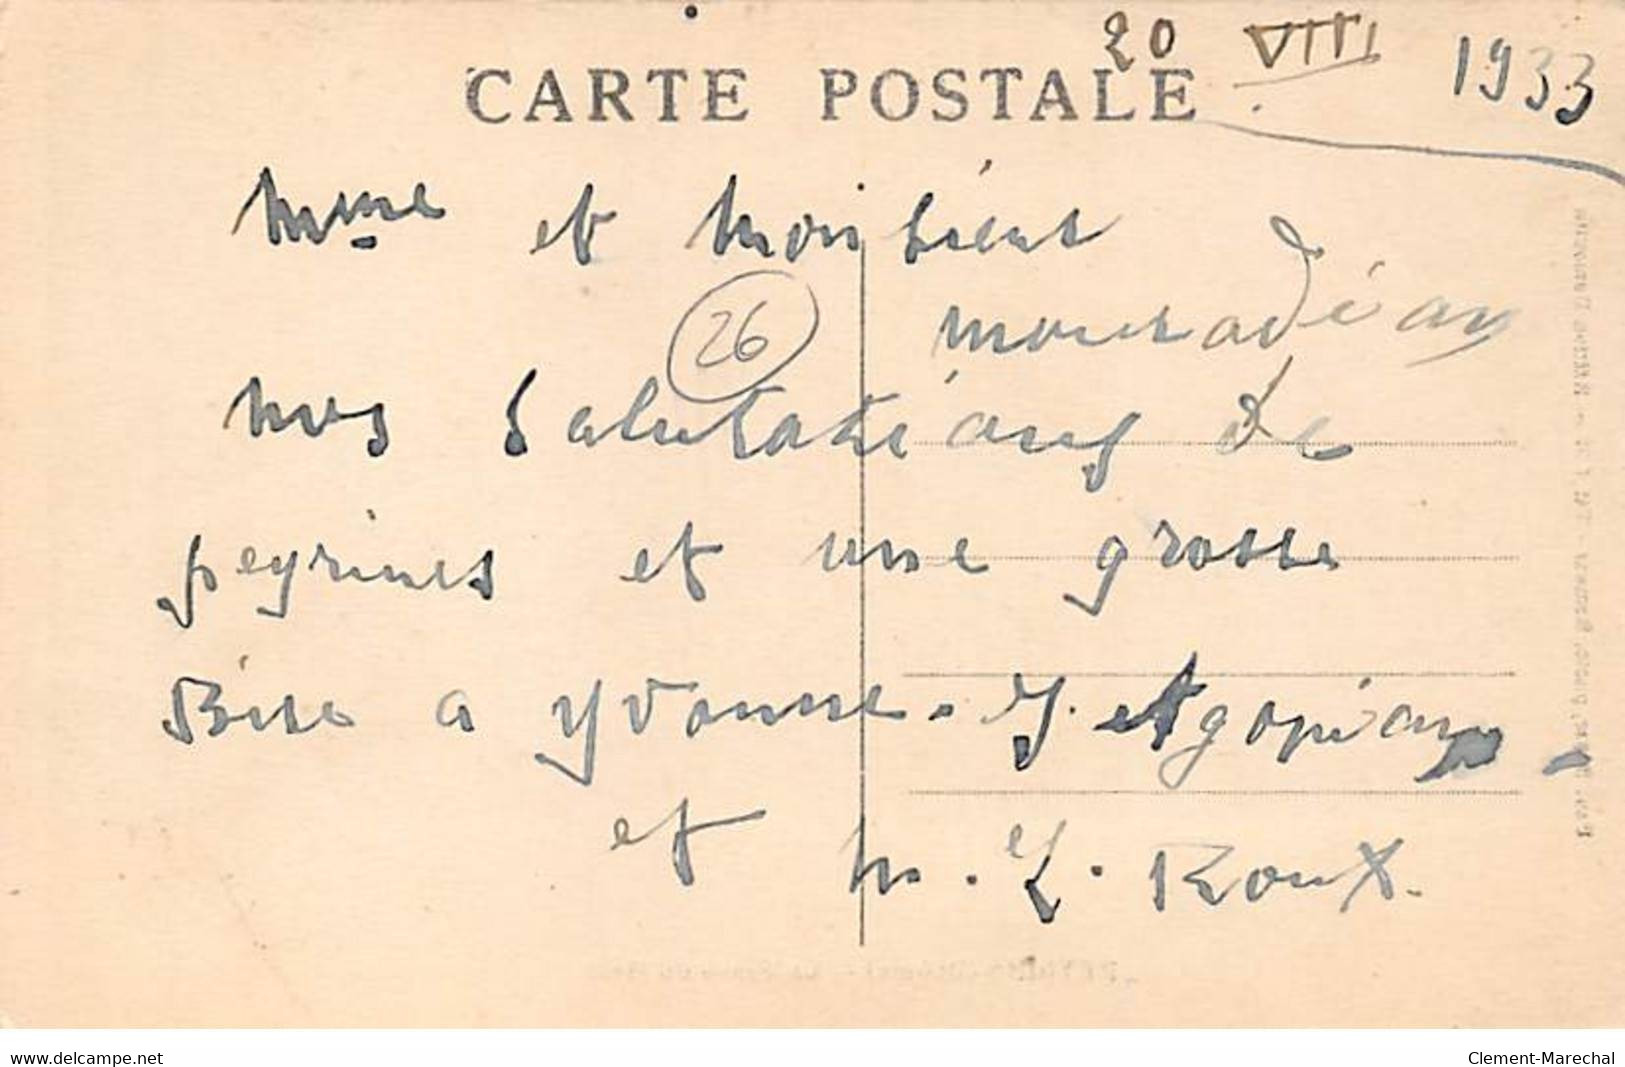 20 VIII 1933
CARTE POSTALE
Mme et Monsieur
mouradian
26
nos Salutations de
peyrines et une grosse
Bise a Yvonne. Y. Agopian
et M. Y. Roux.
www.delcampe.net
Clement-Marechal